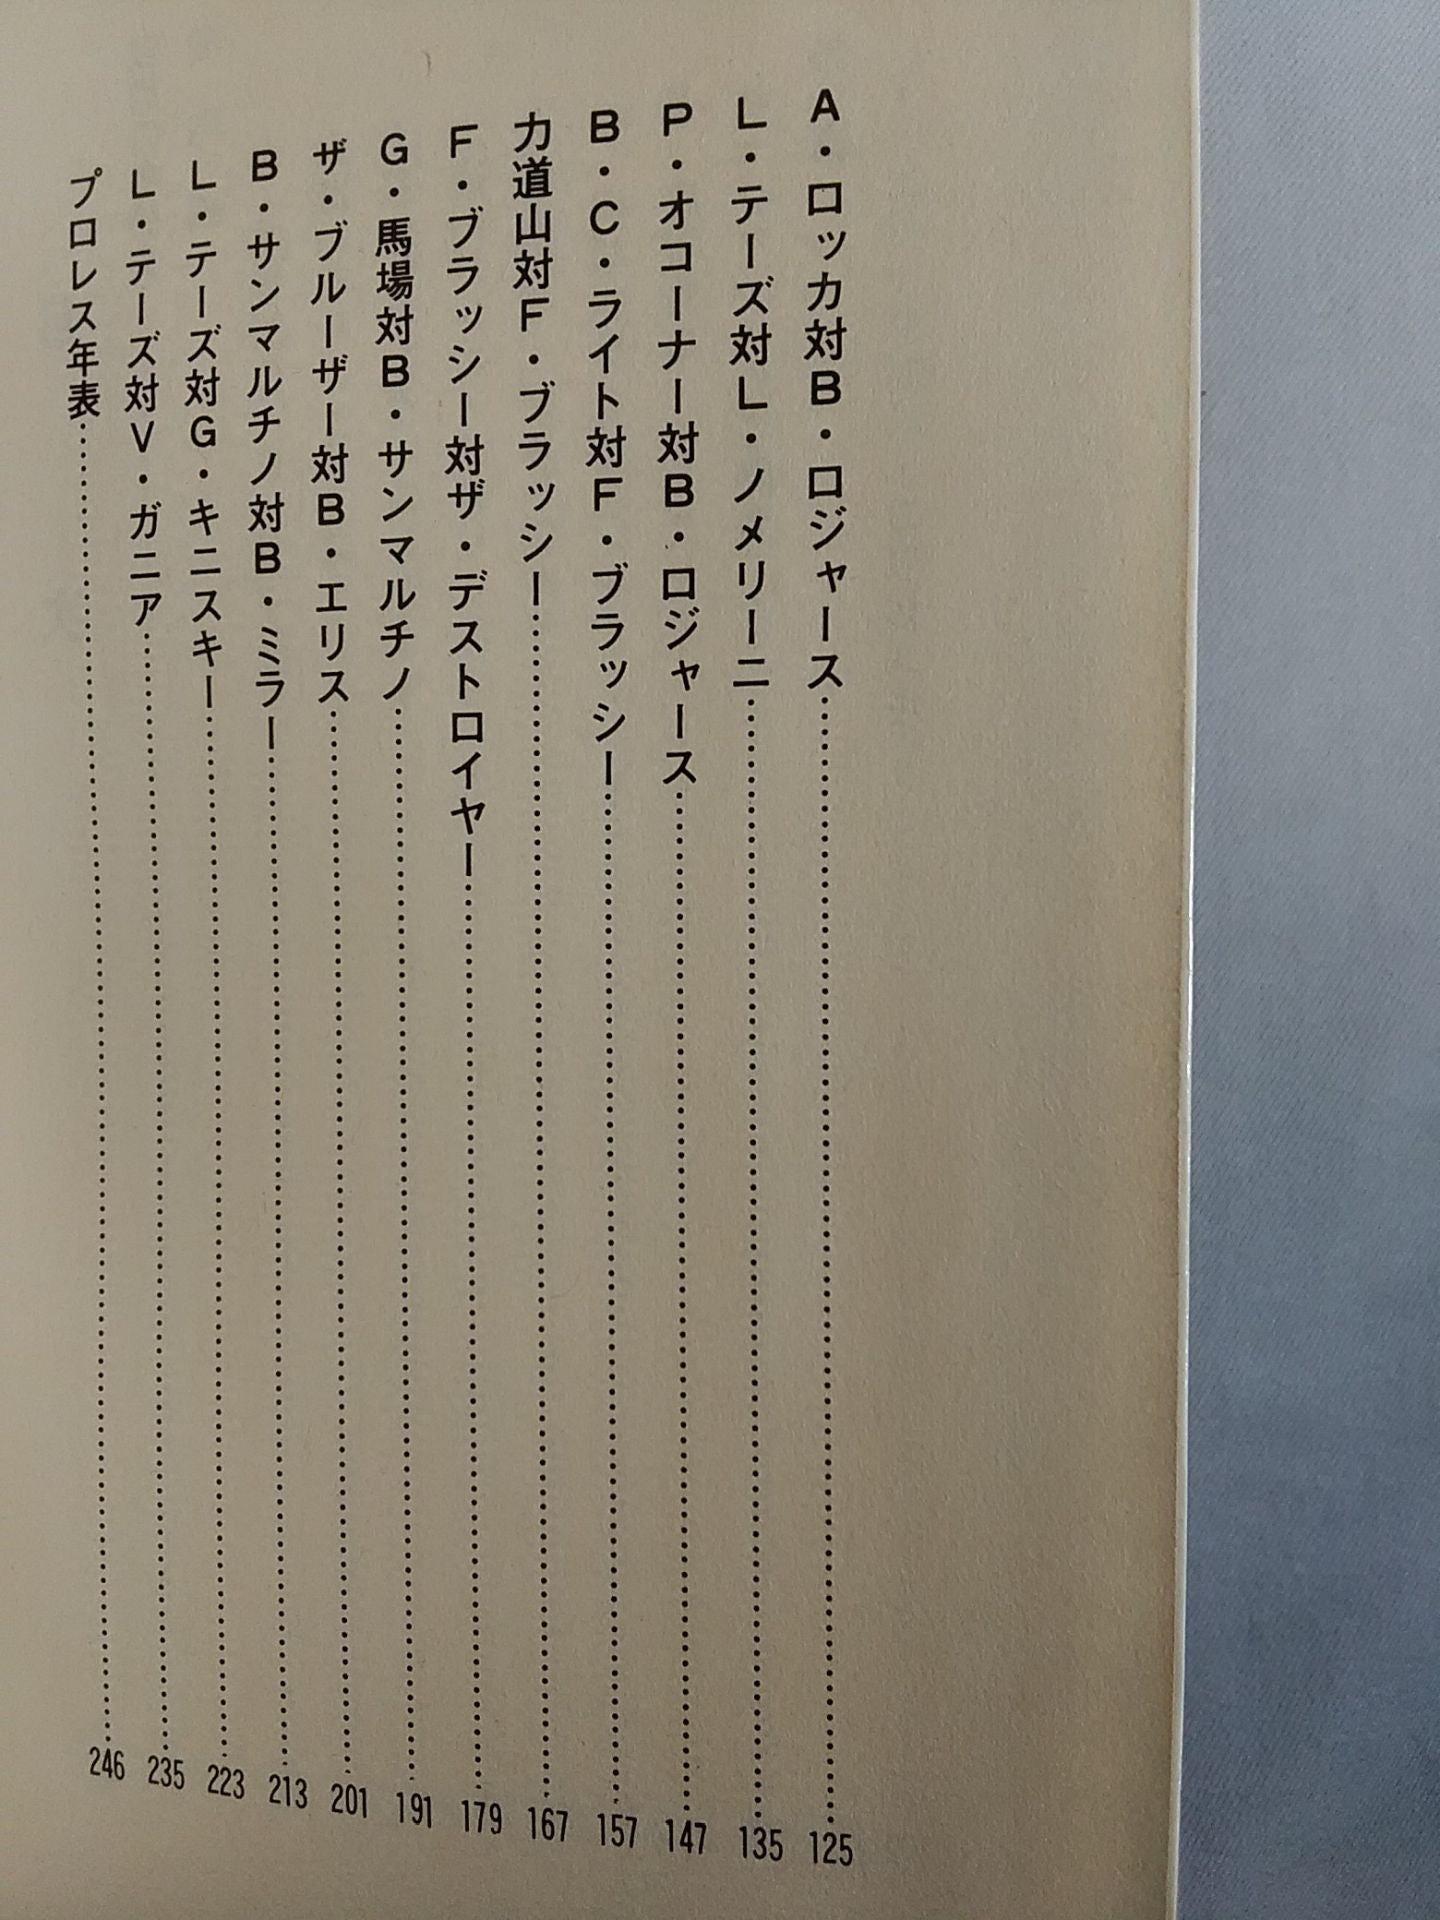 A・ロッカ対B・ロジャース…………125
L・テーズ対L・ノメリーニ…………135
P・オコーナー対B・ロジャース…………147
B・C・ライト対F・ブラッシー…………157
力道山対F・ブラッシー…………167
F・ブラッシー対ザ・デストロイヤー…………179
G・馬場対B・サンマルチノ…………191
ザ・ブルーザー対B・エリス…………201
B・サンマルチノ対B・ミラー…………213
L・テーズ対G・キニスキー…………223
L・テーズ対V・ガニア…………235
プロレス年表…………246